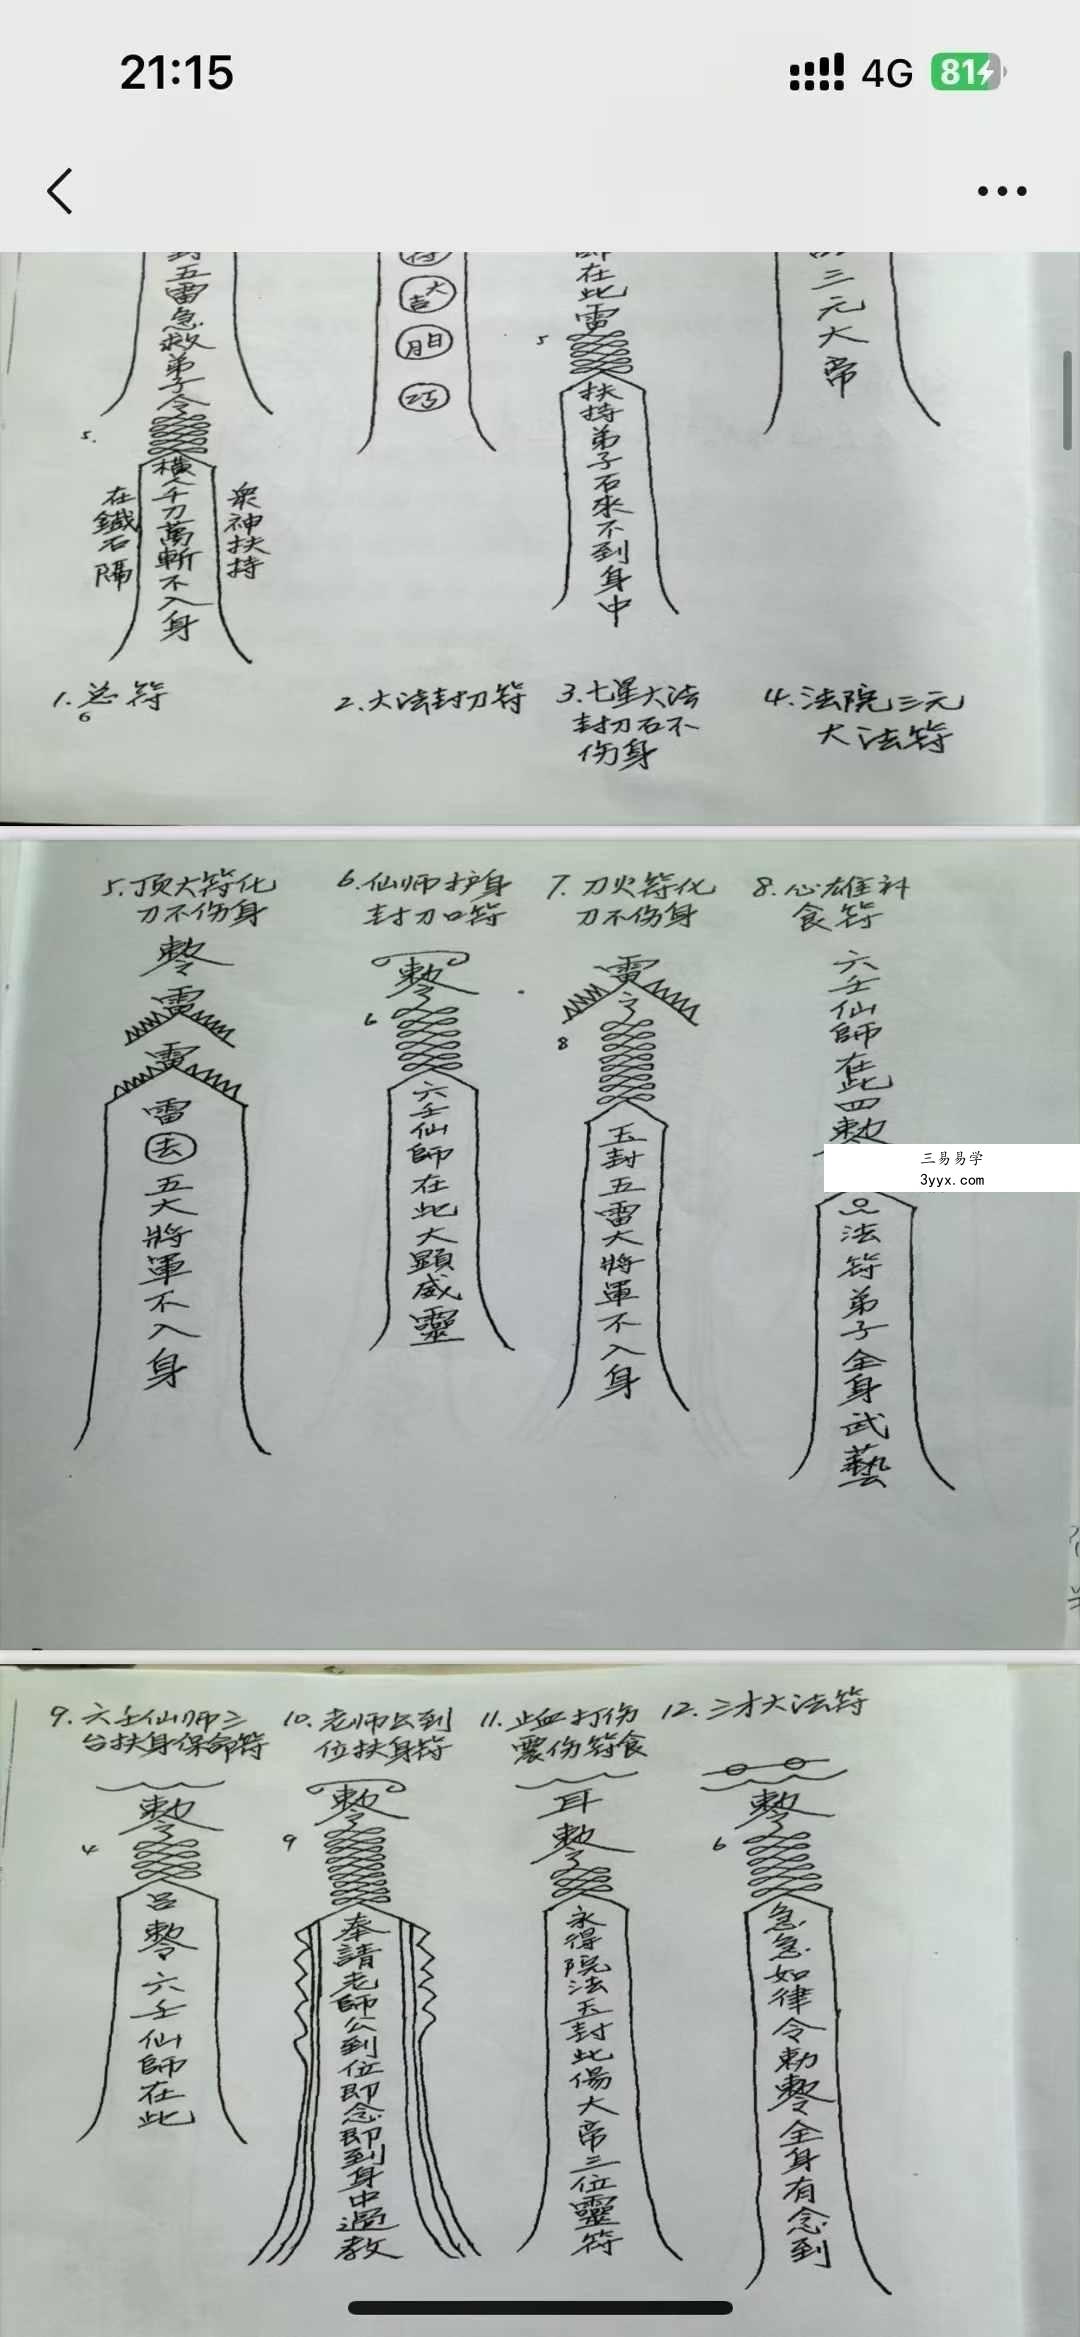 21:15
4G
81
五雷急救弟子令
5.
橫人千刀萬斬不入身
在鐵石隔
眾神扶持
大吉
月日
巧
在此雷
5
扶持弟子石來不到身中
三元大帝
1.总符
6
2.大法封刀符
3.七星大法
封刀石不
伤身
4.法院三元
大法符
5.顶大符化
刀不伤身
雷
雷
雷
去
五大將軍不入身
6.仙师护身
封刀口符
敕令
6
六壬仙師在此大顯威靈
7.刀火符化
刀不伤身
雷令
8
玉封五雷大將軍不入身
8.心雄补
食符
六壬仙師在此四敕
三易易学
3yyx.com
法符弟子全身武藝
9.六壬仙师三
台扶身保命符
敕令
4
呂
六壬仙師在此
10.老师公到
位扶身符
敕令
9
奉請老師公到位即念即到身中過教
11.止血打伤
震伤符食
耳
敕令
永得院法玉封此傷大帝三位靈符
12.三才大法符
敕令
6
急急如律令勅
全身有念到